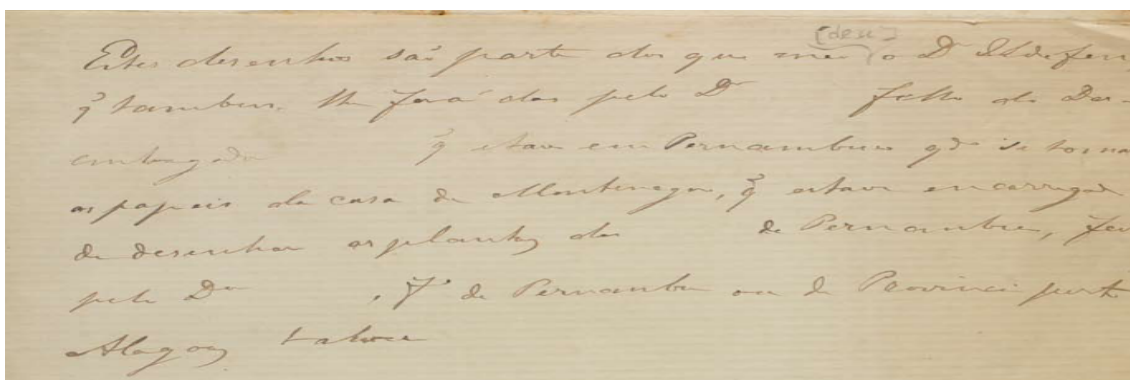 [deu]
Estes desenhos são parte dos que me o Dr Ildefon
q̃ tambem lhe forão dos pelo Dr filho do Des-
embargador q̃ estava em Pernambuco qdo se toma
os papeis da casa de Montenegro, q̃ estava encarregado
de desenhar as plantas das de Pernambuco, fei
pelo Dr , de Pernambu ou de Provinci
Alagoas talvez